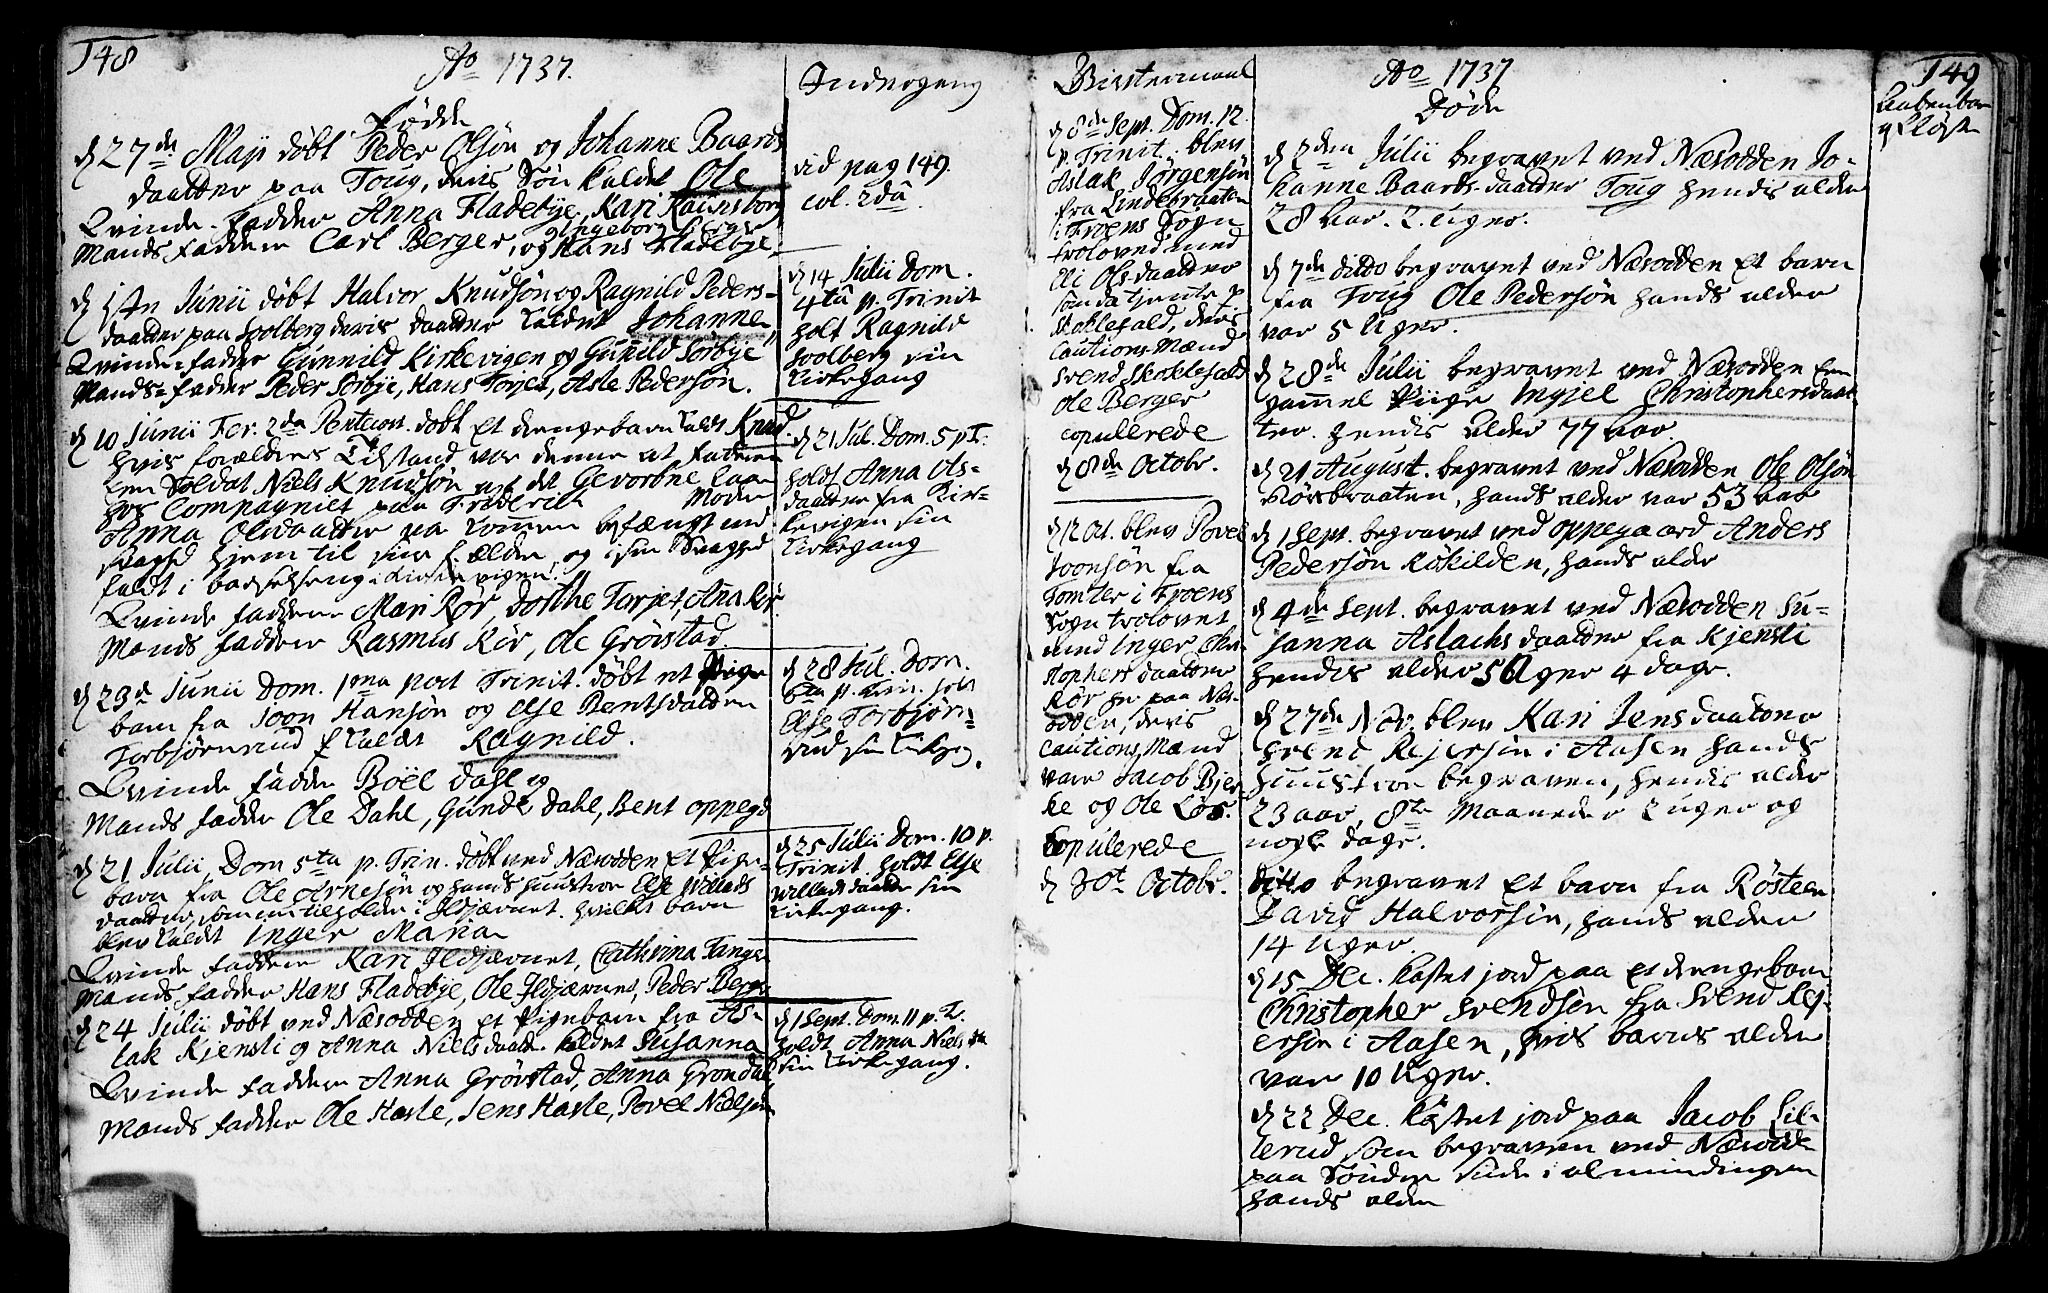 148
Ao 1737.
Fødde
d 27de Maji døbt Peder Olsøn og Johanne Baards
daatter paa Toug, deris Søn kaldet Ole
Qvinde-fadder Anna Fladebÿe, Kari Ravnsborg
og Ingeborg Berger
Mands fadder Carl Berger, og Hans Fladebÿe,
d 1ste Junii døbt Halvor Knudsøn og Ragnild Peders-
daatter paa Soolberg deris daatter kaldet Johanne
Qvinde-fadder Gunnild Kirkevigen og Gunild Sørbÿe
Mands-fadder Peder Sørbÿe, Hans Torjet, Asle Pedersøn.
d 10 Junii Fer. 2da Pentecost. døbt et drengebarn kaldt Knud
hvis forældres Tilstand var denne at faderen
Een Soldat Niels Knudsøn ved det Gevorbne
hos Compagniet paa Friderich Moder
Anna Olsdaatter var kommen besvængt
hjem til sine forældre, og i sin Svaghed
faldt i barselseng i Kirkevigen.
Qvinde fadder Mari Rør, Dorthe Torjet, Ana Rør
Mands fadder Rasmus Rør, Ole Grøvstad.
d 23d Junii Dom. 1ma post Trinit. døbt et Pige
barn fra Joon Hansøn og Else Bentsdaatter
Torbjørnsrud kaldt Ragnild.
Qvinde fadder Boël Dahl og
Mands fadder Ole Dahl, Gunde Dahl, Bent Oppegd
d 21 Julii Dom 5ta p. Trin. døbt ved Næsodden et Pige-
barn fra Ole Arnesøn og hands huustroe Else Willads
daatter som tilholder i Ildjærnet. hvilket barn
blev kaldt Inger Maria
Qvinde fadder Kari Ildjærnet, Cathrina Tangen
Mands fadder Hans Fladebÿe, Ole Ildjærnet, Peder Berger
d 24 Julii døbt ved Næsodden et Pigebarn fra As-
lak Kjensli og Anna Nielsdaatter kaldet Susanna
Qvinde fadder Anna Grøvstad, Anna Grøndal
Mands fadder Ole Hasle, Jens Hasle, Povel Nielsøn
Indregang
vid pag 149.
col. 2dâ.
d 14 Julii Dom.
4tâ p. Trinit
holt Ragnild
Soolberg sin
Kirkegang
d 21 Jul. Dom. 5 p T.
holdt Anna Ols-
daatter fra Kir-
kevigen sin
Kirkegang
d 28 Jul. Dom.
6ta p. Trin. holt
Else Torbjørn-
srud sin Kirkeg.
d 25 Julii Dom. 10 p.
Trinit. holdt Else
Willadsdaatter sin
Kirkegang.
d 1 Sept. Dom. 11 p. T.
holdt Anna Nielsda
sin Kirkegang.
Ægtermaal
d 8de Sept. Dom. 12.
p. Trinit. blev
Aslak Jørgensøn
fra Lindebraaten
i Froens Sogn
trolovet med
Eli Olsdaatter
som da tjente p
Skoklefald, deris
Cautions Mænd
Svend Skoklefald
Ole Berger
copulerede
d 8de Octobr.
d 12 Oct. blev Povel
Joonsøn fra
Tomter i Froens
Sogn trolovet
med Inger Chri
stophersdaatter
Rør her paa Næs
odden, deris
Cautions Mænd
vare Jacob Bjer
ke og Ole Røs.
Copulerede
d 30t Octobr.
Ao 1737
Døde
d 2den Julii begravet ved Næsodden Jo-
hanne Baards-daatter Toug hendis alder
28 Aar. 2. Uger.
d 7de ditto begravet ved Næsodden et barn
fra Toug Ole Pedersøn hands alder
var 5 Uger.
d 28de Julii begravet ved Næsodden Een
gammel Piige Ingjel Christophersdaat-
ter. hendis alder 77 aar.
d 21 August. begravet ved Næsodden Ole Olsøn
Rørsbraaten, hands alder var 53 aar
d 1 Sept. begravet ved Oppegaard Anders
Pedersøn Røkilden, hands alder
d 4de Sept. begravet ved Næsodden Su-
sanna Aslachsdaatter fra Kjensli
hendis alder 5 Uger 4 dage.
d 27de Nov. blev Kari Jensdaatter
Svend Rejersøn i Aasen hands
huustroe begraven, hendis alder
23 aar, 8te Maaneder 2 uger og
nogle dage.
ditto begravet et barn fra Røsteen
David Halvorsøn, hands alder
14 Uger.
d 15 Dec. kastet jord paa et drengebarn
Christopher Svendsøn fra Svend Rej-
ersøn i Aasen, hvis barns alder
var 10 Uger.
d 22 Dec. kastet jord paa Jacob Lil-
lerud som begraven ved Næsodde
paa Sønder Side i almindingen
hands alder
149